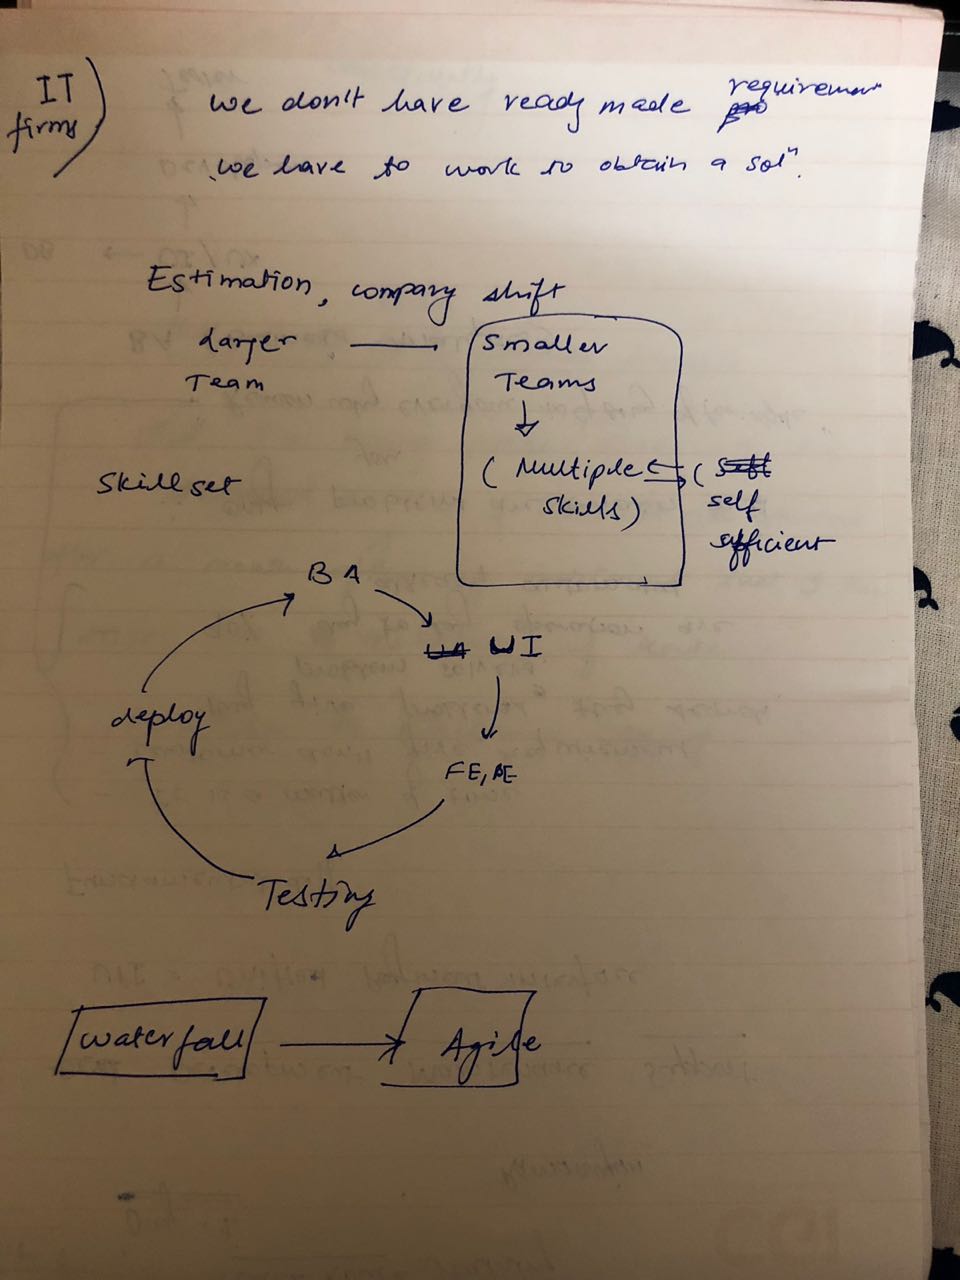 IT
firms
we don't have ready made requiremen
we have to work to obtain a solⁿ.
Estimation, company shift
Larger
Team
Smaller
Teams
(Multiple
skills)
(
self
sufficient
Skill set
BA
UI
FE, BE
Testing
deploy
Waterfall
Agile